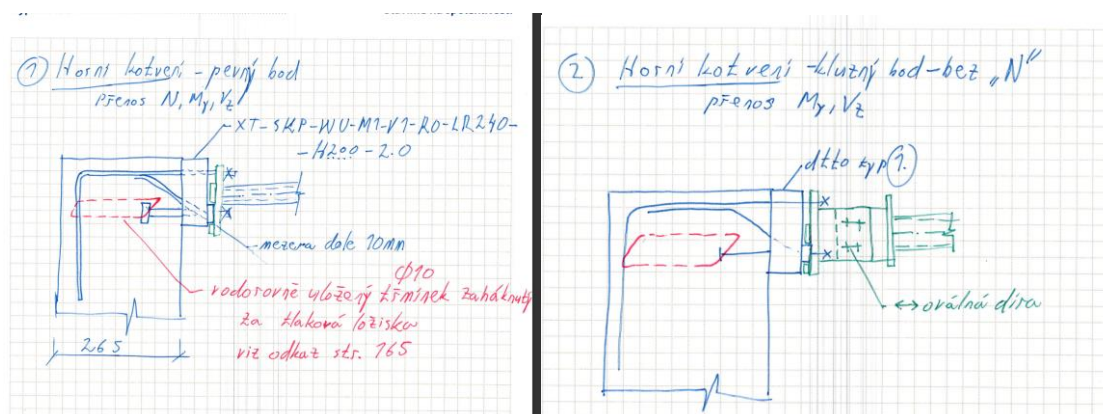 ① Horní kotvení - pevný bod
přenos N, My, Vz
XT-SKP-WU-M1-V1-R0-LR240-
-H200-2.0
mezera dole 10mm
ϕ10
vodorovně uložený třmínek zaháknutý
za tlaková ložiska
viz odkaz str. 165
265
② Horní kotvení -kluzný bod-bez „N"
přenos My, Vz
dtto typ ①.
↔ oválná díra